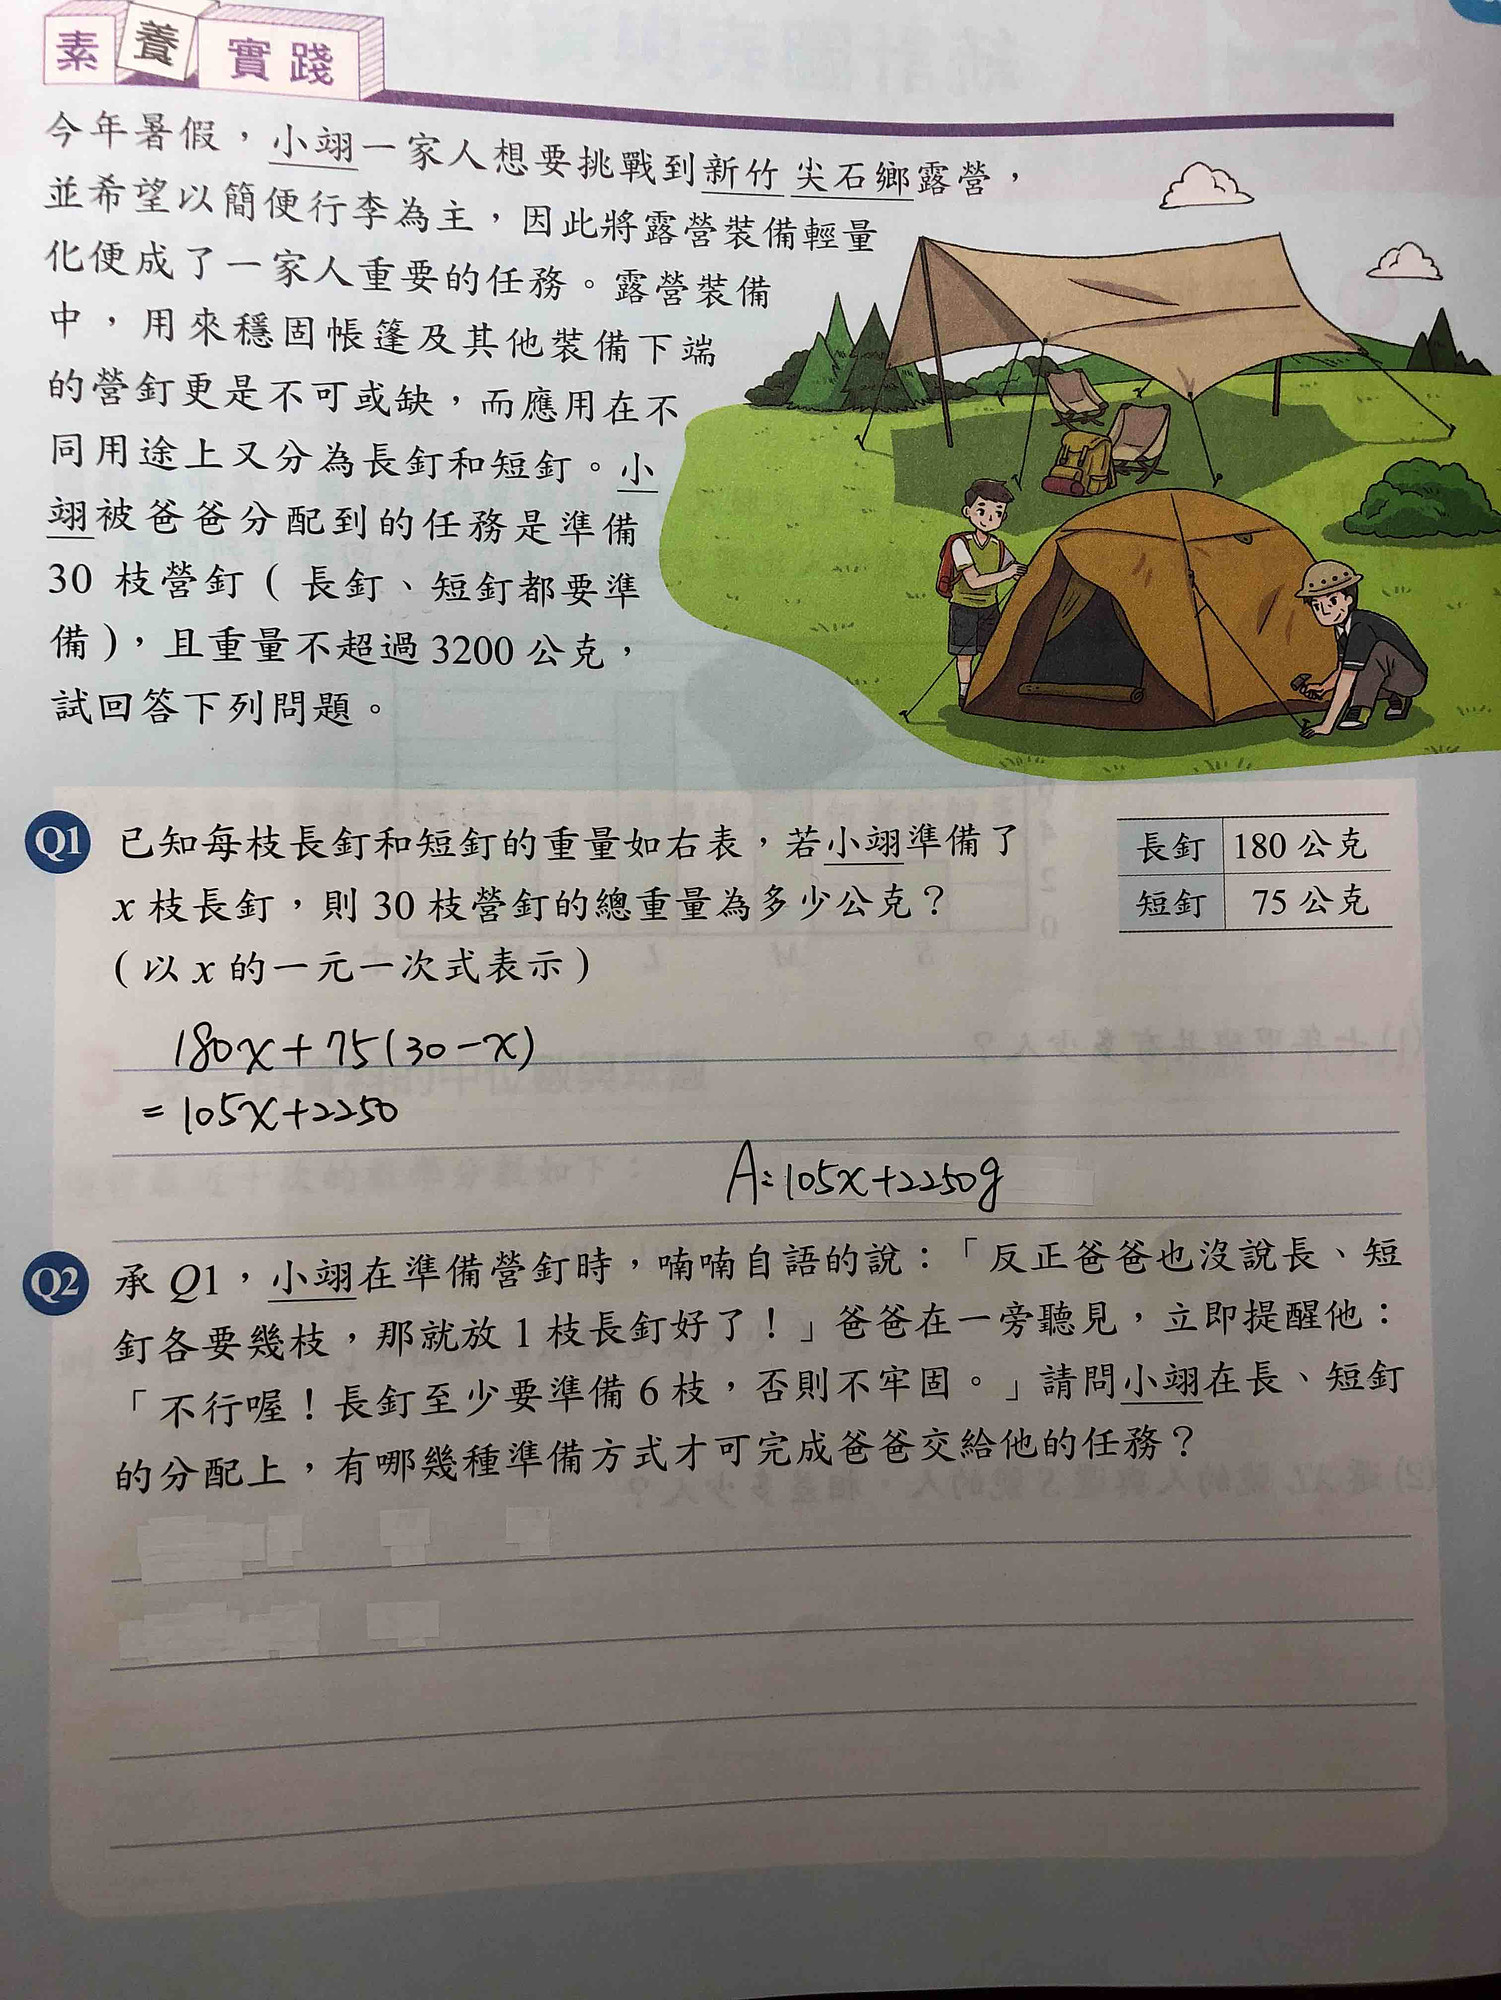 素養實踐
今年暑假，小翊一家人想要挑戰到新竹尖石鄉露營，
並希望以簡便行李為主，因此將露營裝備輕量
化便成了一家人重要的任務。露營裝備
中，用來穩固帳篷及其他裝備下端
的營釘更是不可或缺，而應用在不
同用途上又分為長釘和短釘。小
翊被爸爸分配到的任務是準備
30 枝營釘（長釘、短釘都要準
備），且重量不超過 3200 公克，
試回答下列問題。
Q1 已知每枝長釘和短釘的重量如右表，若小翊準備了
x 枝長釘，則 30 枝營釘的總重量為多少公克？
（以 x 的一元一次式表示）
長釘 180 公克
短釘 75 公克
180x+75(30-x)
=105x+2250
A:105x+2250g
Q2 承 Q1，小翊在準備營釘時，喃喃自語的說：「反正爸爸也沒說長、短
釘各要幾枝，那就放 1 枝長釘好了！」爸爸在一旁聽見，立即提醒他：
「不行喔！長釘至少要準備 6 枝，否則不牢固。」請問小翊在長、短釘
的分配上，有哪幾種準備方式才可完成爸爸交給他的任務？